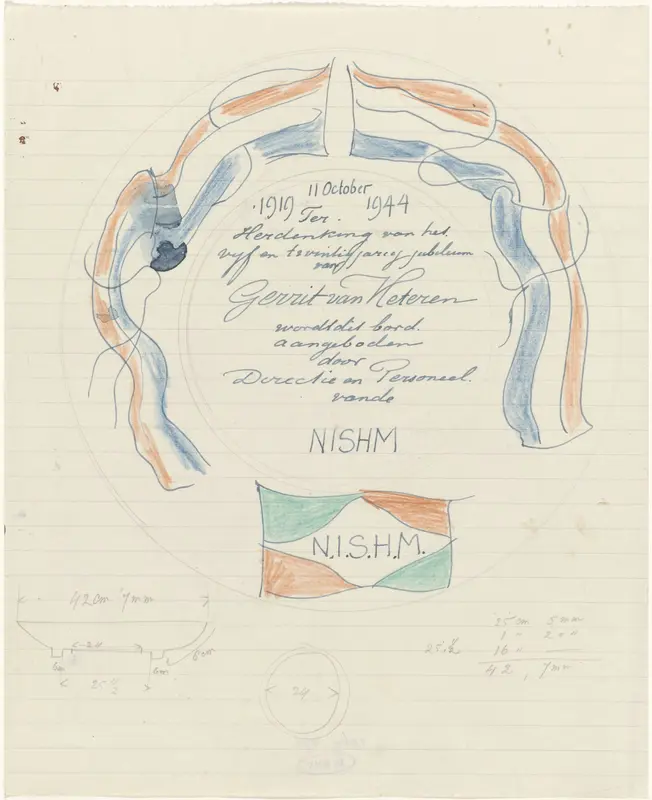 11 October
1919 Ter. 1944
Herdenking van het
vijf en twintig jarig jubileum
van
Gerrit van Heteren
wordt dit bord.
aangeboden
door
Directie en Personeel.
van de
NISHM
N.I.S.H.M.
42 cm 7 mm
24
25 cm 5 mm
1 " 2 " "
16 "
42, 7 mm